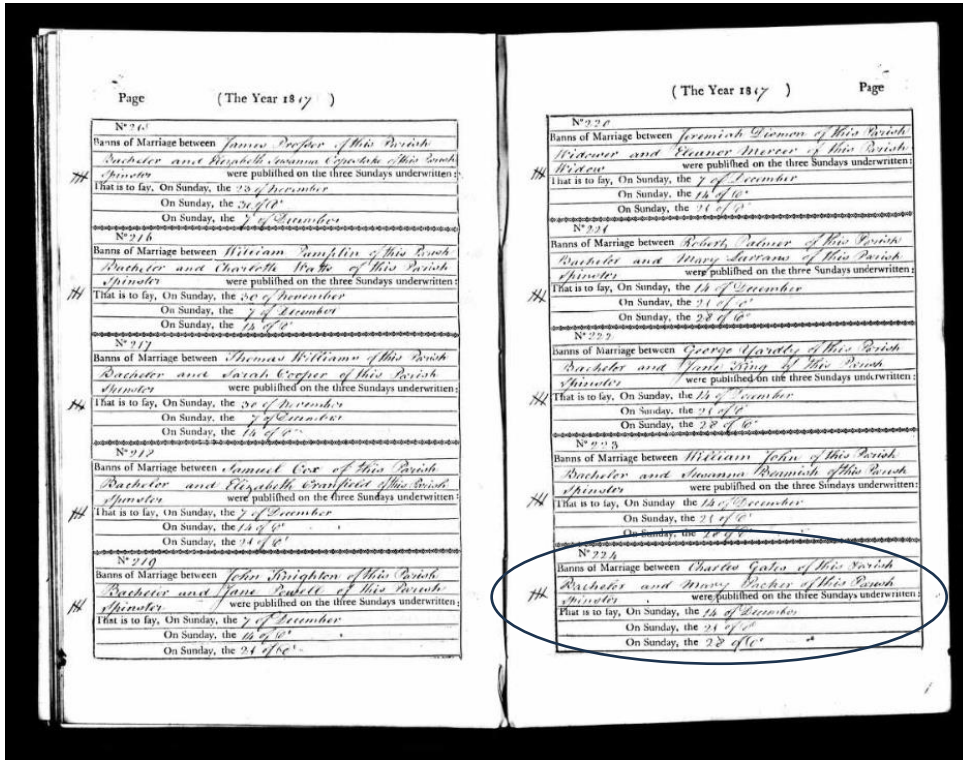 Page (The Year 1817 )
Nº 215
Banns of Marriage between James Prosser of this Parish
Bachelor and Elizabeth Susanna Copestake of this Parish
Spinster were publiſhed on the three Sundays underwritten:
That is to ſay, On Sunday, the 23 of November
On Sunday, the 30 of Dº
On Sunday, the 7 of December
Nº 216
Banns of Marriage between William Pamplin of this Parish
Bachelor and Charlotte Watts of this Parish
Spinster were publiſhed on the three Sundays underwritten:
That is to ſay, On Sunday, the 30 of November
On Sunday, the 7 of December
On Sunday, the 14 of Dº
Nº 217
Banns of Marriage between Thomas Williams of this Parish
Bachelor and Sarah Cooper of this Parish
Spinster were publiſhed on the three Sundays underwritten:
That is to ſay, On Sunday, the 30 of November
On Sunday, the 7 of December
On Sunday, the 14 of Dº
Nº 218
Banns of Marriage between Samuel Cox of this Parish
Bachelor and Elizabeth Cranfield of this Parish
Spinster were publiſhed on the three Sundays underwritten:
That is to ſay, On Sunday, the 7 of December
On Sunday, the 14 of Dº
On Sunday, the 21 of Dº
Nº 219
Banns of Marriage between John Knighton of this Parish
Bachelor and Jane Powell of this Parish
Spinster were publiſhed on the three Sundays underwritten:
That is to ſay, On Sunday, the 7 of December
On Sunday, the 14 of Dº
On Sunday, the 21 of Dº
(The Year 1817 ) Page
Nº 220
Banns of Marriage between Jeremiah of this Parish
Widower and Eleanor Mercer of this Parish
Widow were publiſhed on the three Sundays underwritten:
That is to ſay, On Sunday, the 7 of December
On Sunday, the 14 of Dº
On Sunday, the 21 of Dº
Nº 221
Banns of Marriage between Robert Palmer of this Parish
Bachelor and Mary of this Parish
Spinster were publiſhed on the three Sundays underwritten:
That is to ſay, On Sunday, the 14 of December
On Sunday, the 21 of Dº
On Sunday, the 28 of Dº
Nº 222
Banns of Marriage between George Yardly of this Parish
Bachelor and Jane King of this Parish
Spinster were publiſhed on the three Sundays underwritten:
That is to ſay, On Sunday, the 14 of December
On Sunday, the 21 of Dº
On Sunday, the 28 of Dº
Nº 223
Banns of Marriage between William John of this Parish
Bachelor and Susanna Beamish of this Parish
Spinster were publiſhed on the three Sundays underwritten:
That is to ſay, On Sunday the 14 of December
On Sunday, the 21 of Dº
On Sunday, the 28 of Dº
Nº 224
Banns of Marriage between Charles Gates of this Parish
Bachelor and Mary Packer of this Parish
Spinster were publiſhed on the three Sundays underwritten:
That is to ſay, On Sunday, the 14 of December
On Sunday, the 21 of Dº
On Sunday, the 28 of Dº